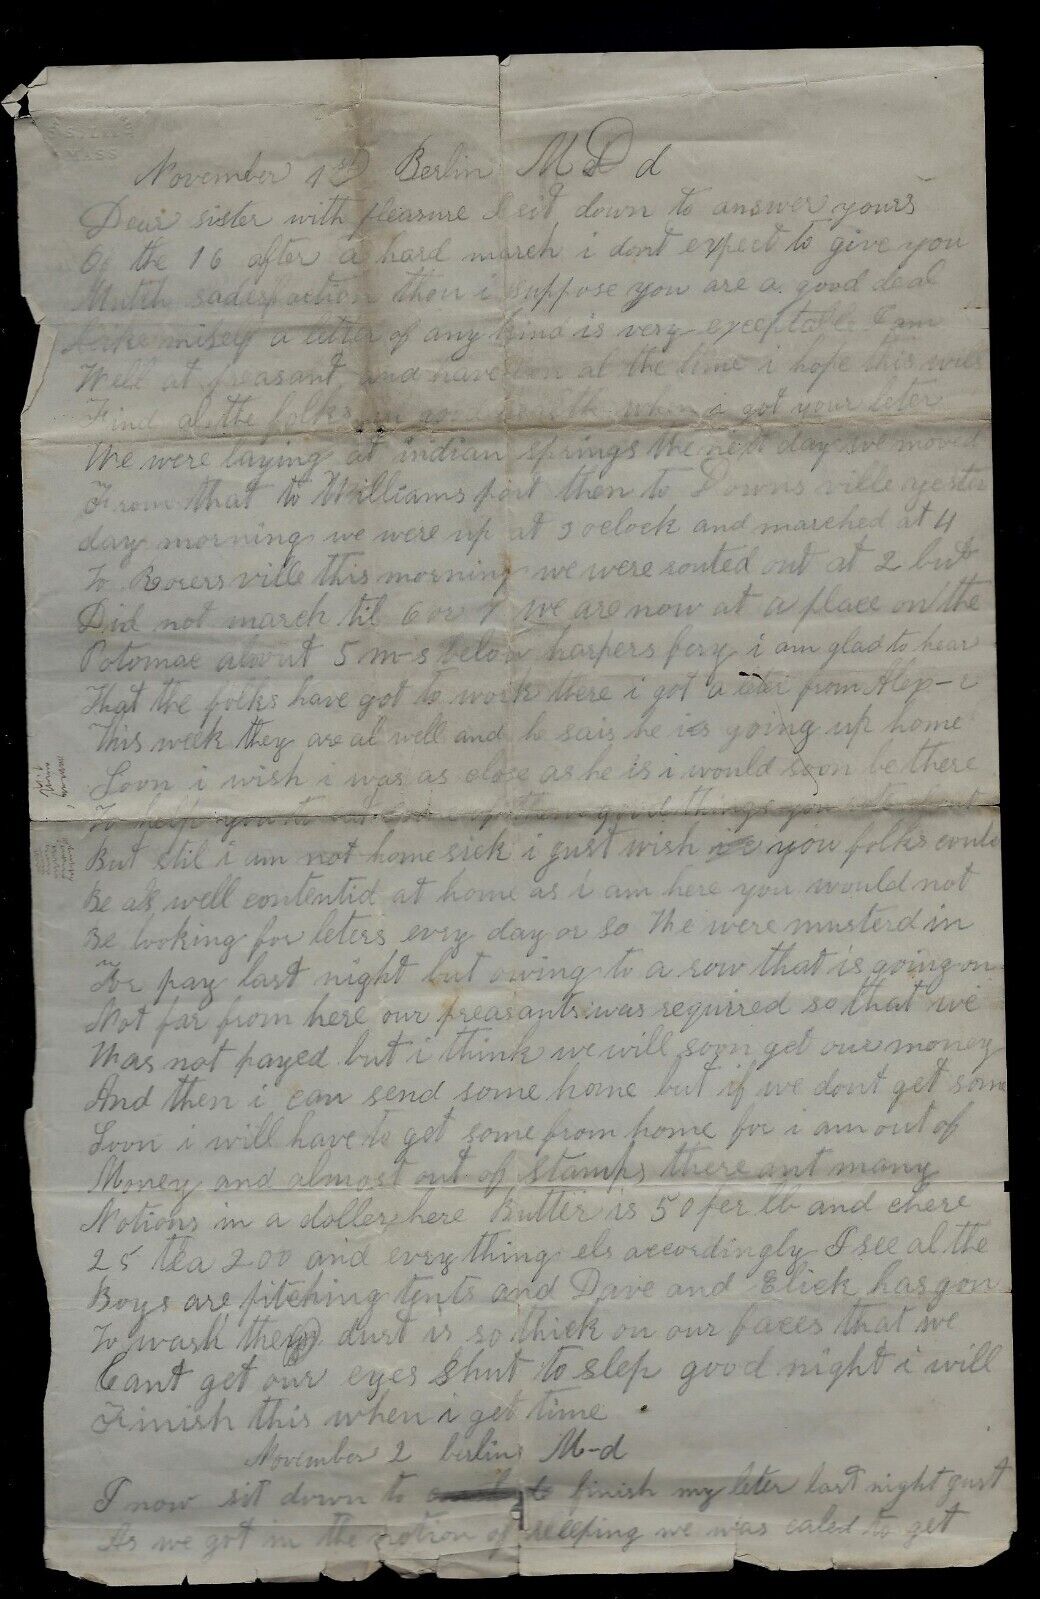 MASS
November 1st Berlin MD d
Dear sister with pleasure I sit down to answer yours
Of the 16 after a hard march i dont expect to give you
Mutch sadesfaction thou i suppose you are a good deal
like misef a leter of any kind is very exceptable I am
Well at preasant and have ben al the time i hope this will
Find al the folks in good health when i got your leter
We were laying at indian springs the next day we moved
From that to Williamsport then to Downs ville yester
day morning we were up at 3 oclock and marched at 4
To Rorersville this morning we were routed out at 2 but
Did not march til 6 or 7 we are now at a place on the
Potomac about 5 m-s below harpers fery i am glad to hear
That the folks have got to work there i got a leter from Alex-r
This week they are al well and he sais he is going up home
Soon i wish i was as close as he is i would soon be there
To help you to eat some of them good things you
But stil i am not home sick i gust wish you folks could
Be as well contentid at home as i am here you would not
Be looking for leters evry day or so We were musterd in
For pay last night but owing to a row that is going on
Not far from here our preasants was requirred so that we
Was not payed but i think we will soon get our money
And then i can send some home but if we dont get some
Soon i will have to get some from home for i am out of
Money and almost out of stamps there ant many
Notions in a doller here Butter is 50 per lb and chese
25 tea 200 and evry thing els accordingly I see al the
Boys are pitching tents and Dave and Elick has gon
To wash the dust is so thick on our faces that we
Cant get our eyes shut to slep good night i will
Finish this when i get time
November 2 berlin M-d
I now sit down to finish my leter last night gust
As we got in the notion of sleeping we was caled to get